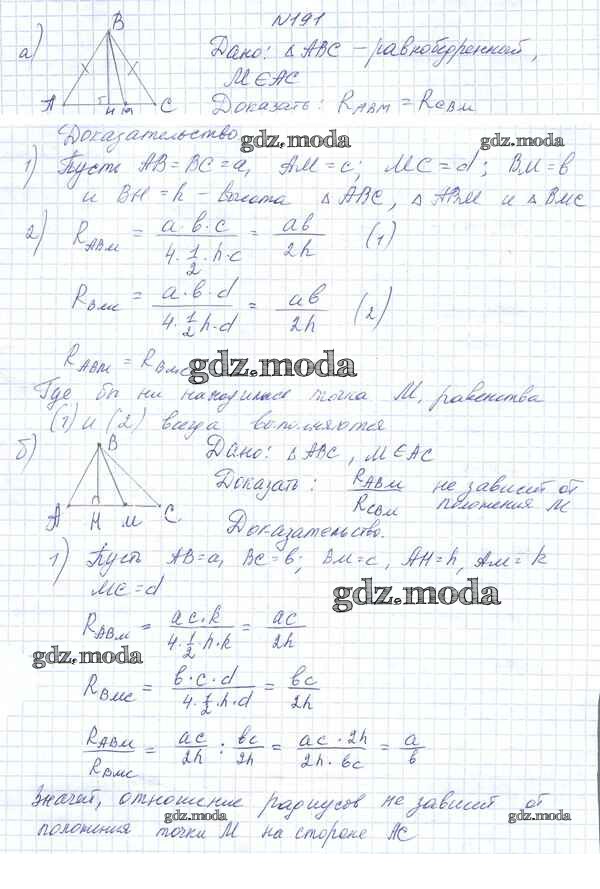 N191
а) B A H M C
Дано: △ABC - равнобедренный,
M∈AC
Доказать: R_ABM = R_CBM
Доказательство
gdz.moda
1) Пусть AB=BC=a, AM=c; MC=d; BM=b
и BH=h - высота △ABC, △ABM и △BMC
2) R_ABM = a·b·c / 4·1/2·h·c = ab / 2h (1)
R_BMC = a·b·d / 4·1/2 h·d = ab / 2h (2)
R_ABM = R_BMC
gdz.moda
Где бы ни находилась точка M, равенства
(1) и (2) всегда выполняются
б) B A H M C
Дано: △ABC, M∈AC
Доказать: R_ABM / R_CBM не зависит от
положения M
Доказательство.
1) Пусть AB=a, BC=b; BM=c, AH=h, AM=k
MC=d
gdz.moda
R_ABM = ac·k / 4·1/2·h·k = ac / 2h
gdz.moda
R_BMC = b·c·d / 4·1/2 h·d = bc / 2h
R_ABM / R_BMC = ac / 2h : bc / 2h = ac·2h / 2h·bc = a / b
Значит, отношение радиусов не зависит от
gdz.moda gdz.moda
положения точки M на стороне AC